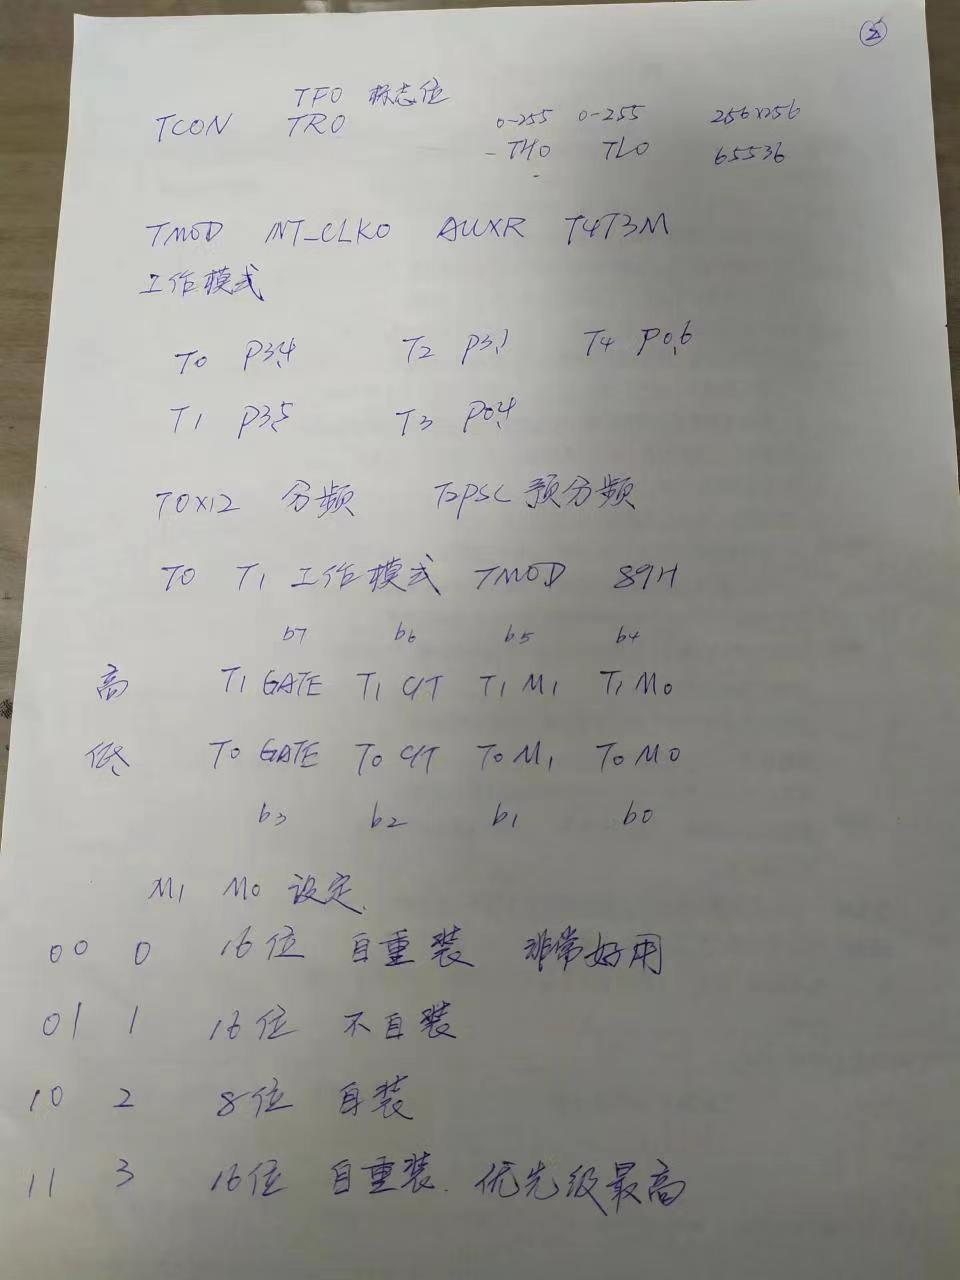 ②
TF0 标志位
TCON TR0 0-255 0-255 256×256
TH0 TL0 65536
TMOD INT_CLKO AUXR T4T3M
工作模式
T0 P3.4 T2 P3.1 T4 P0.6
T1 P3.5 T3 P0.4
T0×12 分频 T2PSC 预分频
T0 T1 工作模式 TMOD 89H
b7 b6 b5 b4
高 T1 GATE T1 C/T T1 M1 T1 M0
低 T0 GATE T0 C/T T0 M1 T0 M0
b3 b2 b1 b0
M1 M0 设定
00 0 16位 自重装 非常好用
01 1 16位 不自装
10 2 8位 自装
11 3 16位 自重装. 优先级最高